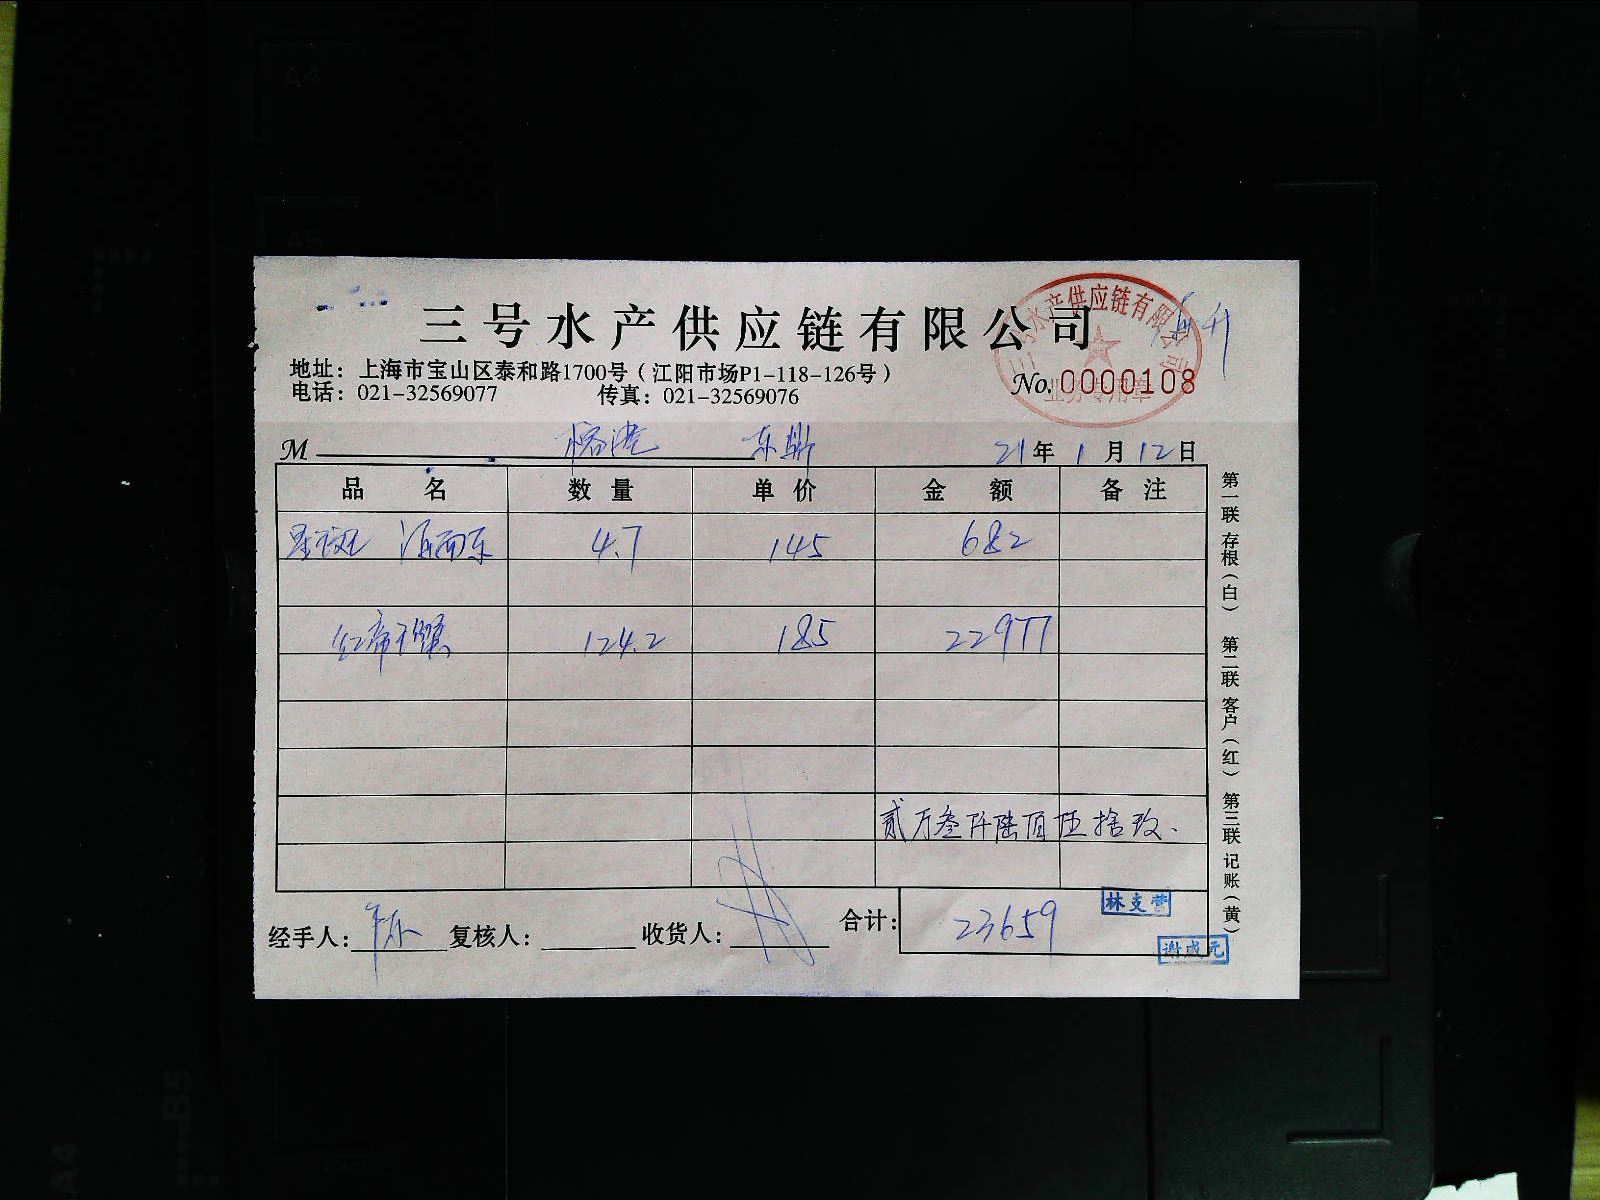 三号水产供应链有限公司
三号水产供应链有限公司
业务专用章
地址：上海市宝山区泰和路1700号（江阳市场P1-118-126号）
No. 0000108
电话：021-32569077 传真：021-32569076
M 榕港 东鼎 21年1月12日
品名 数量 单价 金额 备注
星斑 海南东 4.7 145 682
红帝王蟹 124.2 185 22977
贰万叁仟陆佰伍拾玖.
合计：23659
林支营
谢成元
经手人： 复核人： 收货人：
第一联 存根（白） 第二联 客户（红） 第三联 记账（黄）
A4
A5
B5
A4